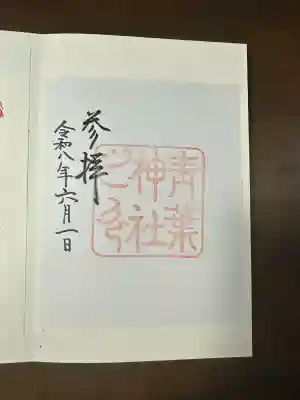 青葉
神社
之印
参拝
令和八年六月一日